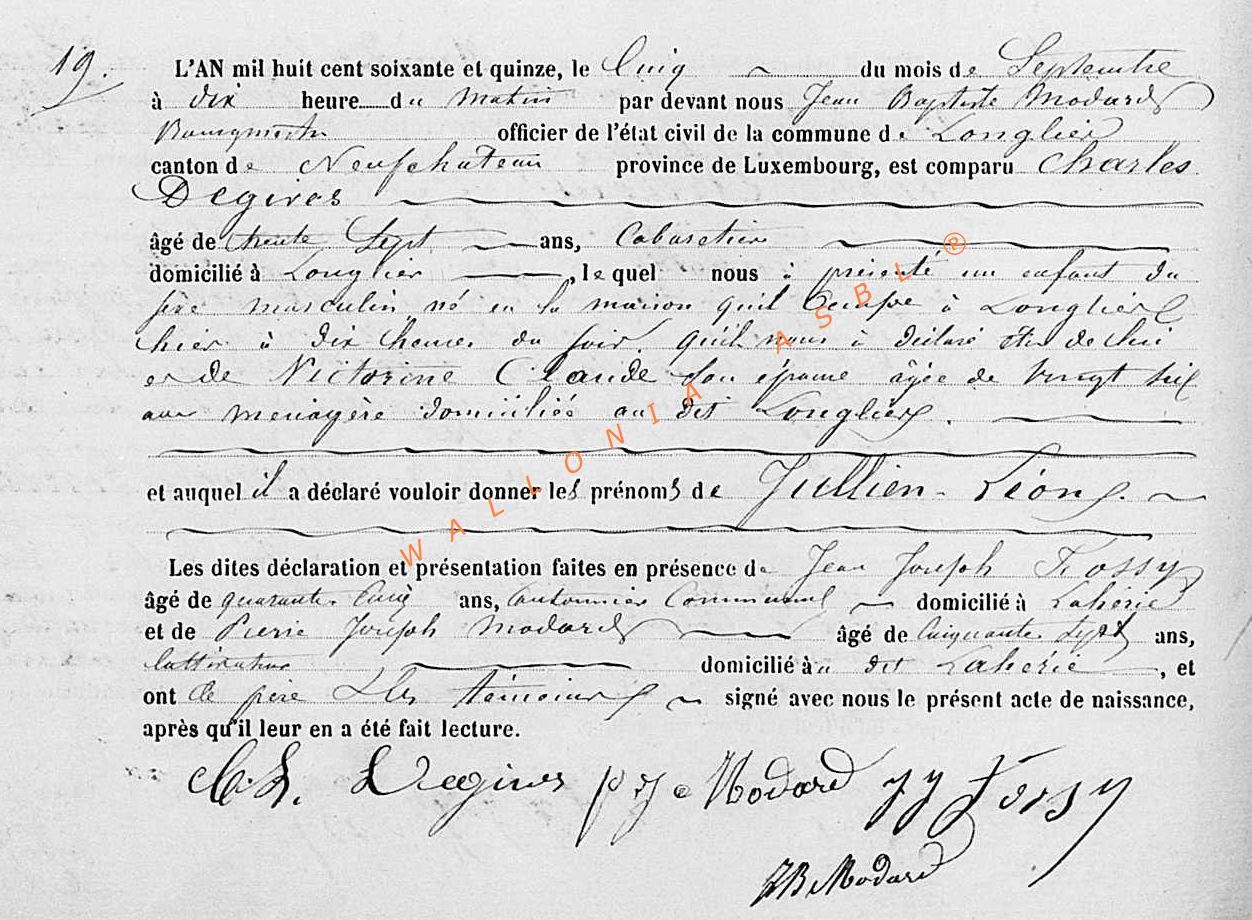 19.
L'AN mil huit cent soixante et quinze, le Cinq du mois de Septembre
à dix heure du matin par devant nous Jean Baptiste Modard
Bourgmestre officier de l'état civil de la commune de Longlier
canton de Neufchateau province de Luxembourg, est comparu Charles
Degives
âgé de trente Sept ans, Cabaretier
domicilié à Longlier, lequel nous à présenté un enfant du
sexe masculin né en la maison qu'il Occupe à Longlier
hier à dix heures du soir. qu'il nous à déclaré être de lui
et de Victorine Claude son épouse âgée de Vingt six
ans menagère domiciliée au dit Longlier.
et auquel il a déclaré vouloir donner les prénoms de Jullien - Léon.
Les dites déclaration et présentation faites en présence de Jean Joseph Fossy
âgé de quarante Cinq ans, Cantonnier Communal domicilié à Lahérie
et de Pierre Joseph Modard âgé de Cinquante Sept ans,
Cultivateur domicilié au dit Lahérie, et
ont le père & les témoins signé avec nous le présent acte de naissance,
après qu'il leur en a été fait lecture.
Ch. Degives p j Modard J J Fossy
JB Modard
WALLONIA ASBL ®